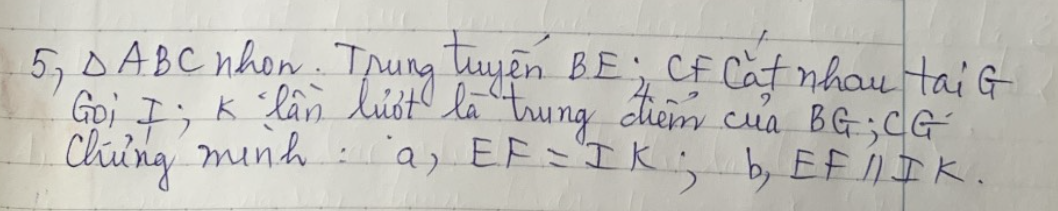 5, Δ ABC nhọn. Trung tuyến BE; CF cắt nhau tại G
Gọi I; K lần lượt là trung điểm của BG; CG
Chứng minh: a, EF = IK; b, EF // IK.